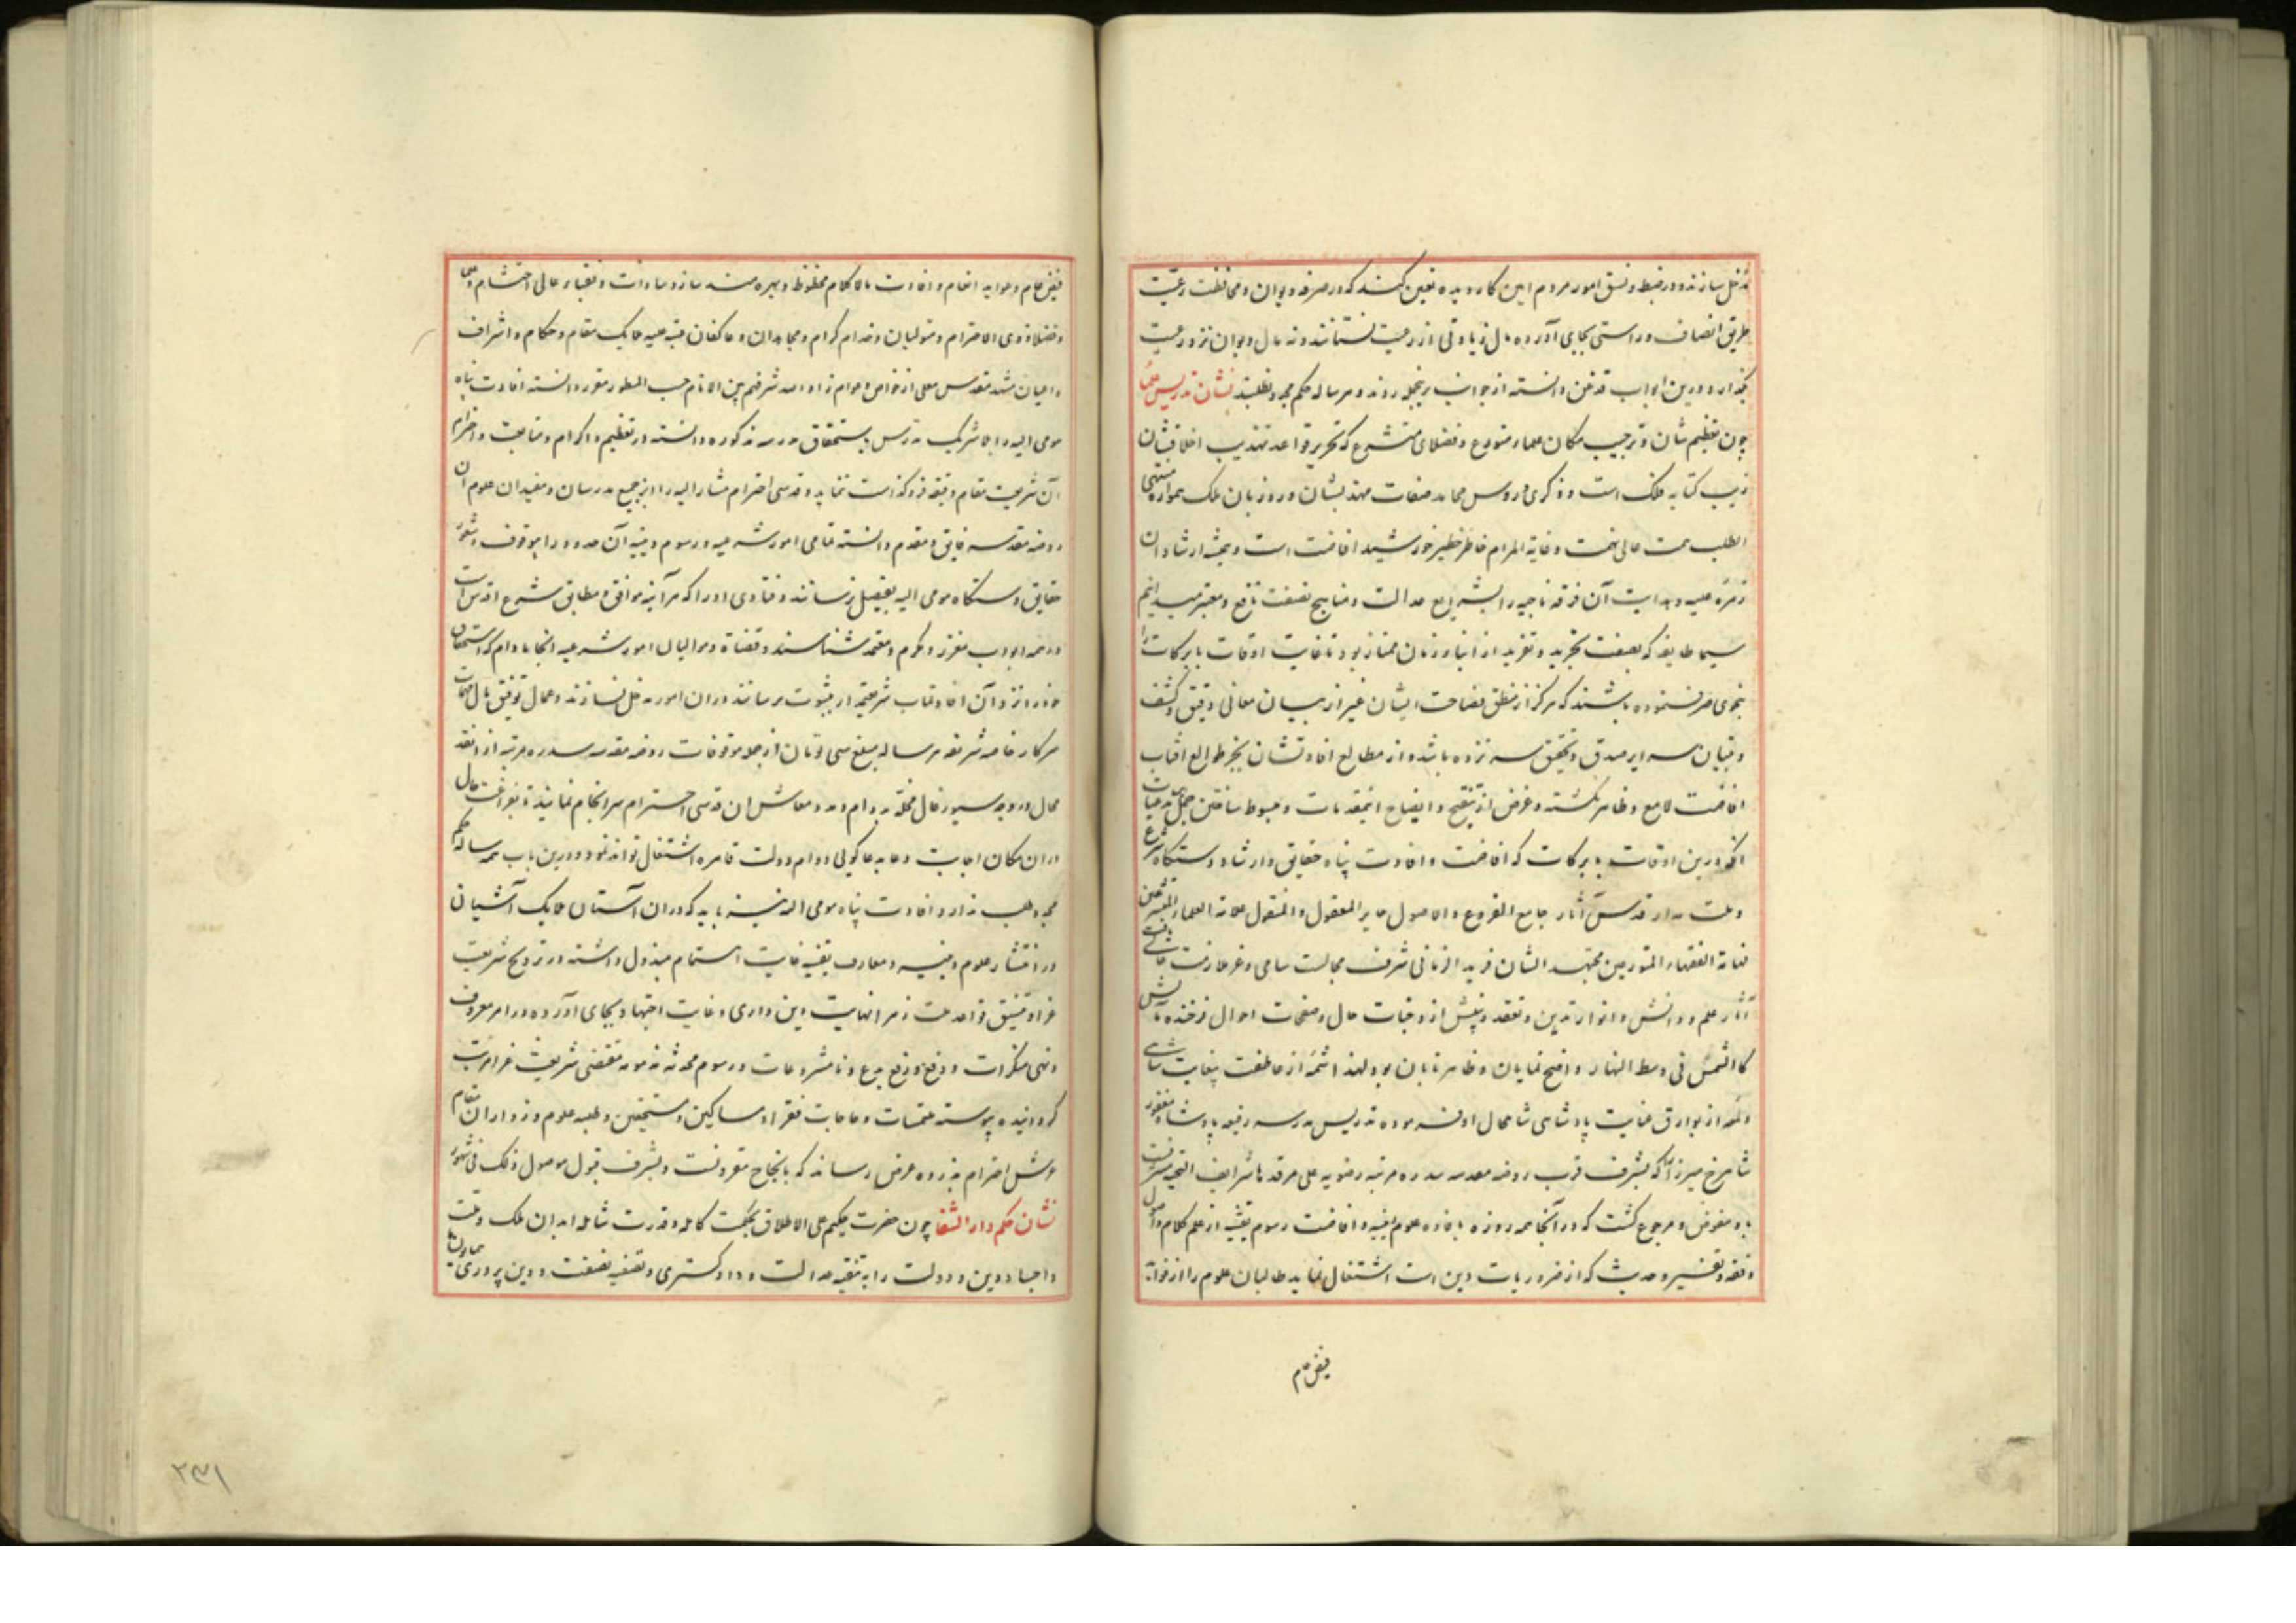 مدخل سازند و در ضبط و نسق امور مردم امین کاردیده تعین کنند که در صرفه دیوان و محافظت رعیت
طریق انصاف و راستی بجای آورده مال زیادتی از رعیت نستانند و نه مال دیوان نزد رعیت
بگذارد و درین ابواب قدغن دانسته از جوانب برینجمله روند و هر ساله حکم مجدد نطلبند نشان تدریس علما
چون تعظیم شان و ترحیب مکان علماء متورع و فضلای متشرع که تحریر قواعد تهذیب اخلاقشان
زیب کتابه فلک است و ذکری دروس محامد صفات مهذبشان ورد زبان ملک همواره منتهی
الطلب همت عالی نهمت و غایة المرام خاطر خطیر خورشید افاضت است و بمیثه ارشاد ان
زمره علیه و هدایت آن فرقه ناجیه را بشرایع عدالت و مناهیج نصفت نافع و معتبر میدانیم
سیما طایفه که بصفت تجرید و تفرید از ابناء زمان ممتاز بود تا غایت اوقات بابرکات را
بنحوی صرف نموده باشند که هرگز از منطق فصاحت ایشان غیر از بیان معانی دقیق و کشف
و تبیان سرایر صدق و تحقیق سر نزده باشد و از مطالع افادتشان بجز طوالع آفتاب
افاضت لامع و ظاهر نگشته و غرض از تنقیح و ایضاح اینمقدمات و مبسوط ساختن
آنکه درین اوقات بابرکات که افاضت و افادت پناه حقایق و ارشاد دستگاه شرع
و ملت مدار قدسی آثار جامع الفروع و الاصول حایز المعقول و المنقول علامة العلماء المتشرعین
فهامة الفقهاء المتورعین مجتهد الشان فرید الزمانی شرف مجالست سامی و عز ملازمت
آثار علم و دانش و انوار تدین و تفقد و بینش از وجنات حال و صفحات احوال فرخنده
کالشمس فی وسط النهار واضح نمایان و ظاهر تابان بود لهذا شمه از عاطفت بیغایت شاهی
و لمعه از بوارق عنایت پادشاهی شامحال او فرموده تدریس مدرسه رفیعه پادشاه مغفور
شاهرخ میرزا که بشرف قرب روضه مقدسه سدره مرتبه رضویه علی مرقدها شرایف التحیه
باو مفوض و مرجوع گشت که در آنجا همه روزه بافاده علوم دینیه و افاضت رسوم یقینیه از علم کلام و اصول
و فقه و تفسیر و حدیث که از ضروریات دین است اشتغال نماید طالبان علوم را از فواید
فیض عام
فیض عام و مواید انعام و افادت مالاکلام محظوظ و بهره مند سازد سادات و نقباء عالی احتشام و علما
و فضلاء ذوی الاحترام و متولیان و خدام کرام و مجاوران و عاکفان عتبه علیه ملایک مقام و حکام و اشراف
و اعیان مشهد مقدس معلی از خواص و عوام زاد الله شرفهم بین الانام حسب المسطور مقرر دانسته افادت پناه
مومی الیه را بلاشریک مدرس باستحقاق مدرسه مذکوره دانسته در تعظیم و اکرام و متابعت و احترام
آن شریعت مقام دقیقه فروگذاشت ننماید و قدسی احترام مشارالیه را از جمیع مدرسان و مفیدان علوم ان
روضه مقدسه فایق و مقدم دانسته تمامی امور شرعیه و رسوم دینیه آن حدود را بوقوف و شعور
حقایق دستگاه مومی الیه بفیصل رسانند و فتاوی او را که هر آینه موافق و مطابق شرع اقدس است
در همه ابواب معزز و مکرم و معتمد شناسند و قضاة و موالیان امور شرعیه انجا مادام که استحقاق
خود را نزد آن افادتماب شریعتمدار بثبوت نرسانند در ان امور مدخل نسازند و عمال توفیق مال مهمات
سرکار خاصه شریفه هر ساله مبلغ سی تومان از جمله موقوفات روضه مقدسه سدره مرتبه از انقد
محال در وجه سیورغال مخلد بدوام و مدد معاش ان قدسی احترام سرانجام نمایند تا بفراغت حال
در ان مکان اجابت دعا بدعاگویی دوام دولت قاهره اشتغال تواند نمود و درین باب همه ساله حکم
مجدد طلب ندارد و افادت پناه مومی الیه نیز باید که در ان آستان ملایک آشیان
در انتشار علوم دینیه و معارف یقینیه غایت اهتمام مبذول داشته در ترویج شریعت
غرا و تنسیق قواعد ملت زهرا نهایت دین داری و غایت اجتهاد بجای آورده در امر معروف
و نهی منکرات و دفع و رفع بدع و نامشروعات و رسوم محدثه مذمومه مقتضی شریعت غرا مرتب
گردانیده پیوسته ملتمسات و حاجات فقرا و مساکین و مستحقین و طلبه علوم و زواران
عرش احترام بذروه عرض رساند که بانجاح مقرونست و بشرف قبول موصول ذلک فی شهور
نشان حکم دار الشفا چون حضرت حکیم علی الاطلاق بحکمت کامله و قدرت شامله ابدان ملک و ملت
و اجساد دین و دولت را به تنقیه عدالت و دادگستری و تصفیه نصفت و دین پروری